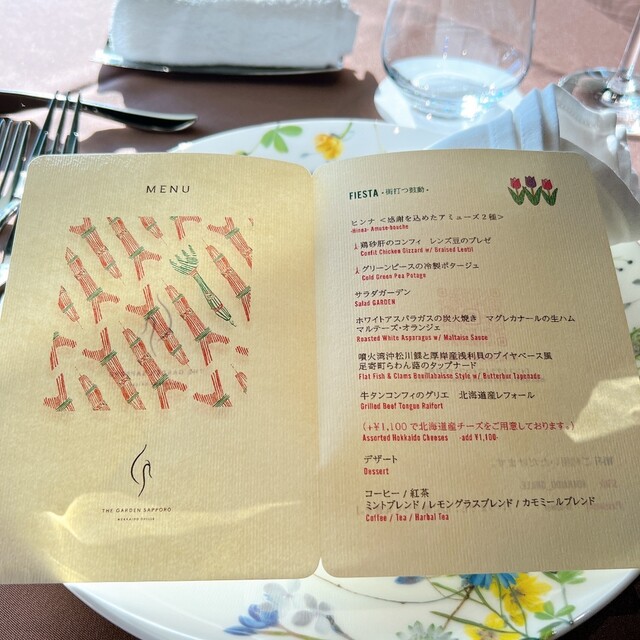 MENU
THE GARDEN SAPPORO
HOKKAIDO CUISINE
FIESTA -街打つ鼓動-
ヒンナ <感謝を込めたアミューズ2種>
-Hinna- Amuse-bouche
鶏砂肝のコンフィ レンズ豆のブレゼ
Confit Chicken Gizzard w/ Braised Lentil
グリーンピースの冷製ポタージュ
Cold Green Pea Potage
サラダガーデン
Salad GARDEN
ホワイトアスパラガスの炭火焼き マグレカナールの生ハム
マルテーズ・オランジェ
Roasted White Asparagus w/ Maltaise Sauce
噴火湾沖松川鰈と厚岸産浅利貝のブイヤベース風
足寄町らわん蕗のタップナード
Flat Fish & Clams Bouillabaisse Style w/ Butterbur Tapenade
牛タンコンフィのグリエ 北海道産レフォール
Grilled Beef Tongue Raifort
(+¥1,100で北海道産チーズをご用意しております。)
Assorted Hokkaido Cheeses -add ¥1,100-
デザート
Dessert
コーヒー / 紅茶
ミントブレンド / レモングラスブレンド / カモミールブレンド
Coffee / Tea / Harbal Tea